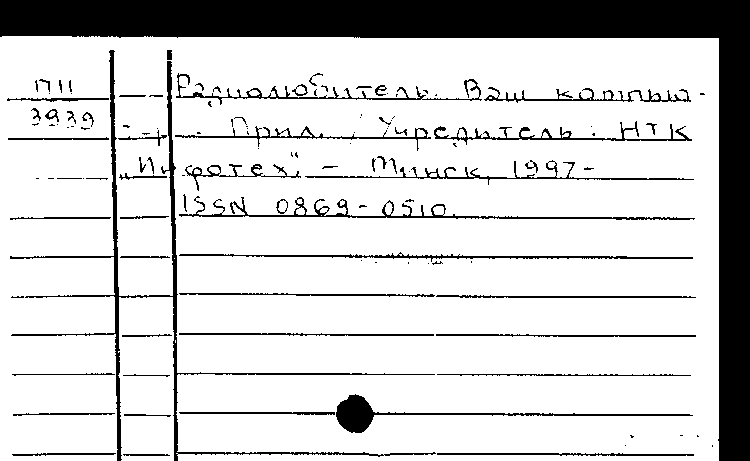 ПII Радиолюбитель. Ваш компью-
3939 - + . Прил. / Учредитель: НТК
„Инфотех". - Минск, 1997-
ISSN 0869-0510.